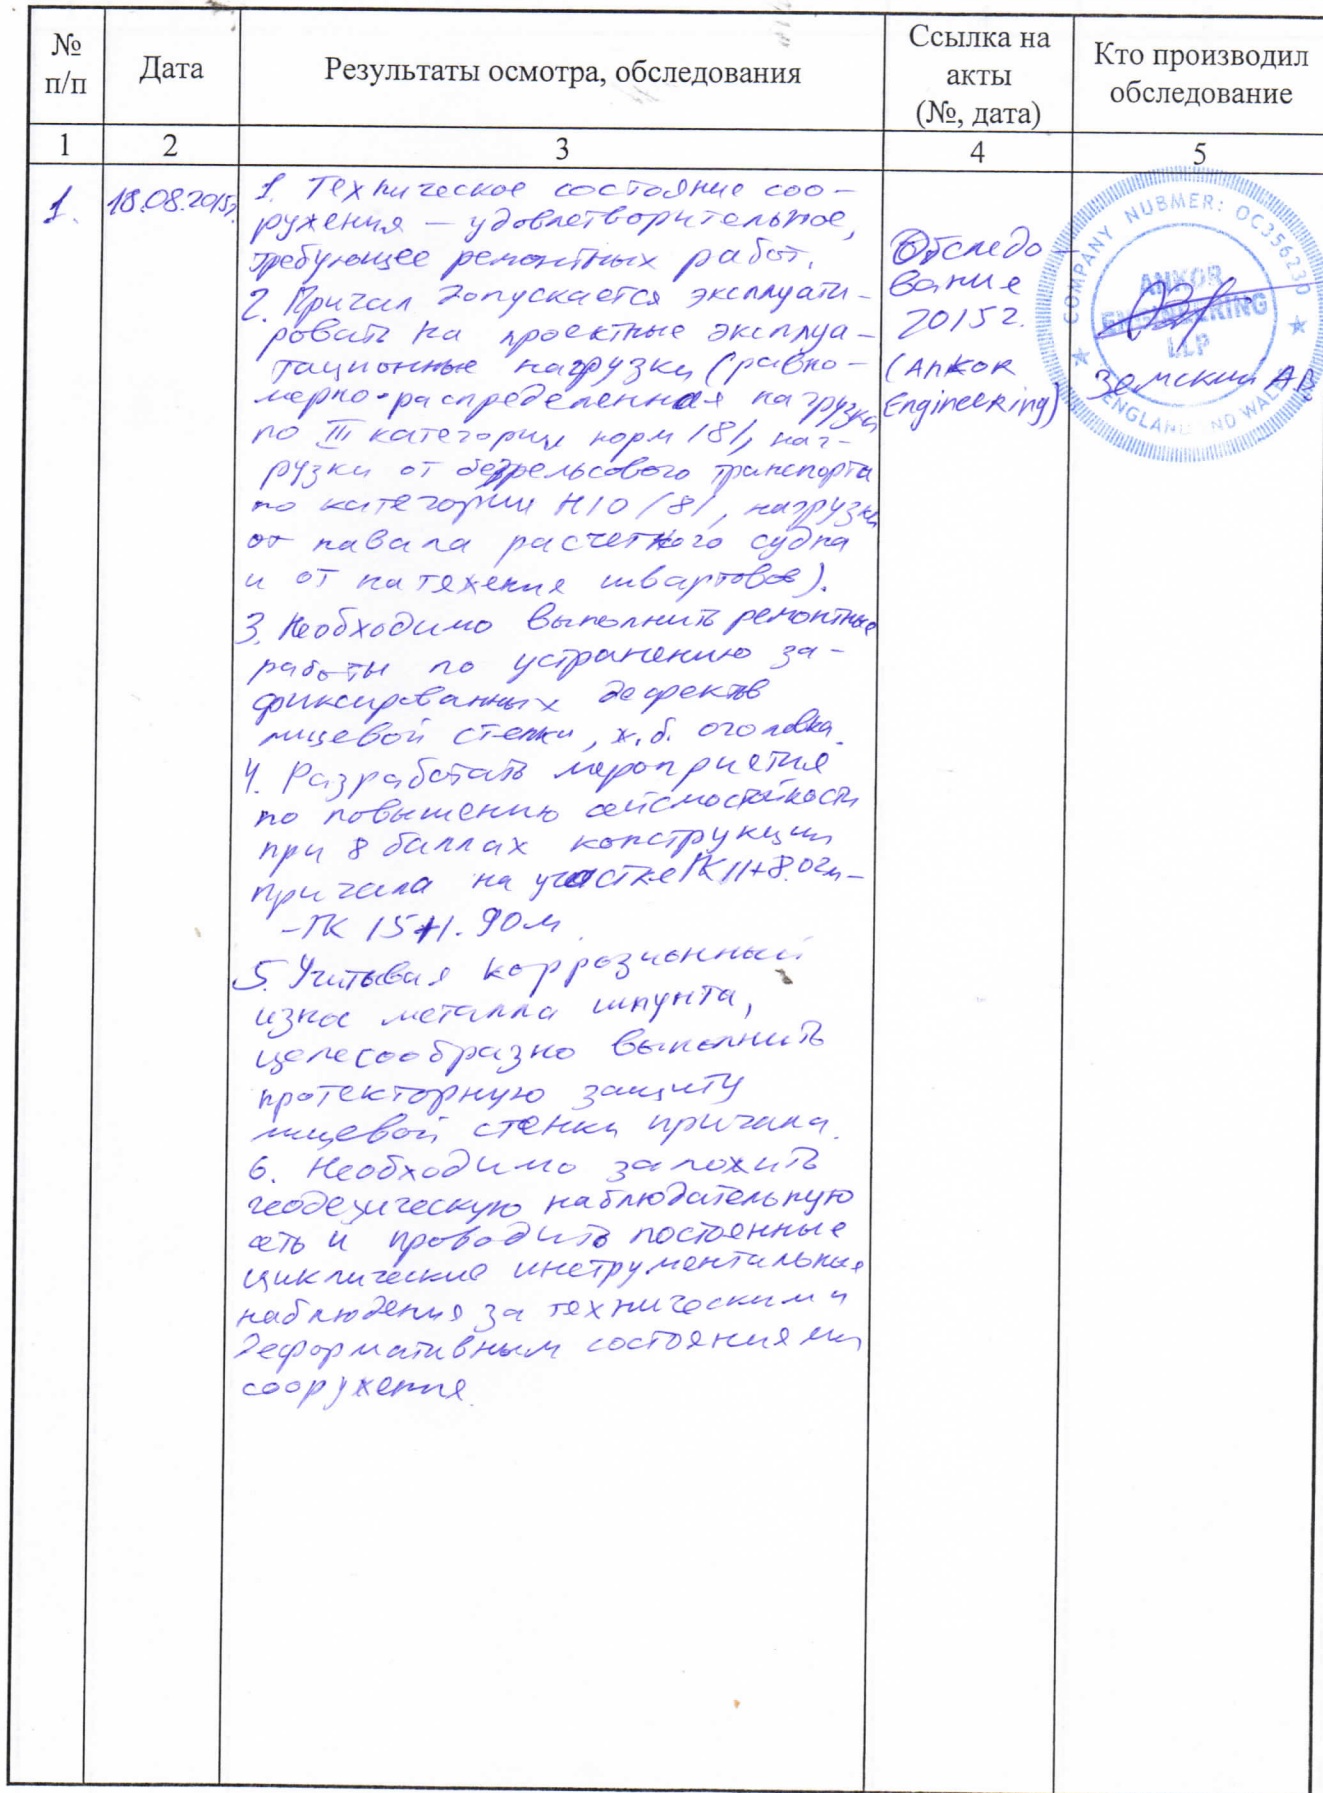 № п/п
Дата
Результаты осмотра, обследования
Ссылка на акты (№, дата)
Кто производил обследование
1
2
3
4
5
1.
18.08.2015г.
1. Техническое состояние соо-
ружения – удовлетворительное,
требующее ремонтных работ.
2. Причал допускается эксплуати-
ровать на проектные эксплуа-
тационные нагрузки (равно-
мерно-распределенная нагрузка
по III категории норм /8/, наг-
рузки от безрельсового транспорта
по категории Н10 /8/, нагрузки
от навала расчетного судна
и от натяжения швартовов).
3. Необходимо выполнить ремонтные
работы по устранению за-
фиксированных дефектов
лицевой стенки, ж.б. оголовка.
4. Разработать мероприятия
по повышению сейсмостойкости
при 8 баллах конструкции
причала на участке ПК 11+8.02м-
-ПК 15+1.90м.
5. Учитывая коррозионный
износ металла шпунта,
целесообразно выполнить
протекторную защиту
лицевой стенки причала.
6. Необходимо заложить
геодезическую наблюдательную
сеть и проводить постоянные
циклические инструментальные
наблюдения за техническим и
деформативным состояниями
сооружения.
Обследо-
вание
2015г.
(Ankor
Engineering)
COMPANY NUBMER: OC356230
ANKOR
ENGINEERING
LLP
ENGLAND AND WALES
Земский АВ